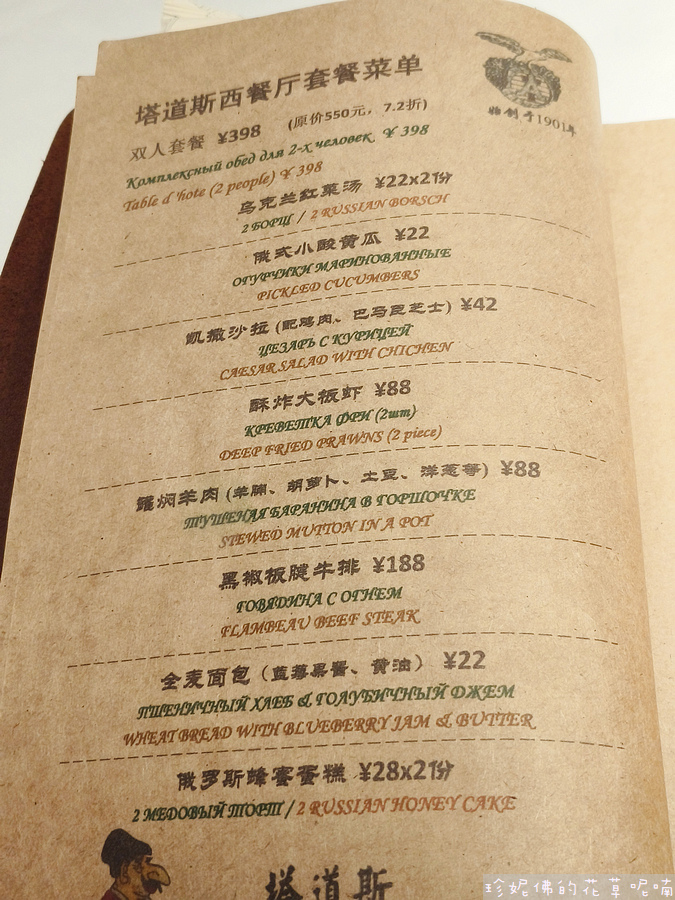 塔道斯西餐厅套餐菜单
始创于1901年
双人套餐 ¥398 (原价550元，7.2折)
Комплексный обед для 2-х человек ¥ 398
Table d 'hote (2 people) ¥ 398
乌克兰红菜汤 ¥22x2份
2 БОРЩ / 2 RUSSIAN BORSCH
俄式小酸黄瓜 ¥22
ОГУРЧИКИ МАРИНОВАННЫЕ
PICKLED CUCUMBERS
凯撒沙拉 (配鸡肉、巴马臣芝士) ¥42
ЦЕЗАРЬ С КУРИЦЕЙ
CAESAR SALAD WITH CHICHEN
酥炸大板虾 ¥88
КРЕВЕТКА ФРИ (2шт)
DEEP FRIED PRAWNS (2 piece)
罐焖羊肉 (羊腩、胡萝卜、土豆、洋葱等) ¥88
ТУШЕНАЯ БАРАНИНА В ГОРШОЧКЕ
STEWED MUTTON IN A POT
黑椒板腱牛排 ¥188
ГОВЯДИНА С ОГНЕМ
FLAMBEAU BEEF STEAK
全麦面包 (蓝莓果酱、黄油) ¥22
ПШЕНИЧНЫЙ ХЛЕБ & ГОЛУБИЧНЫЙ ДЖЕМ
WHEAT BREAD WITH BLUEBERRY JAM & BUTTER
俄罗斯蜂蜜蛋糕 ¥28x2份
2 МЕДОВЫЙ ТОРТ / 2 RUSSIAN HONEY CAKE
塔道斯
珍妮佛的花草呢喃